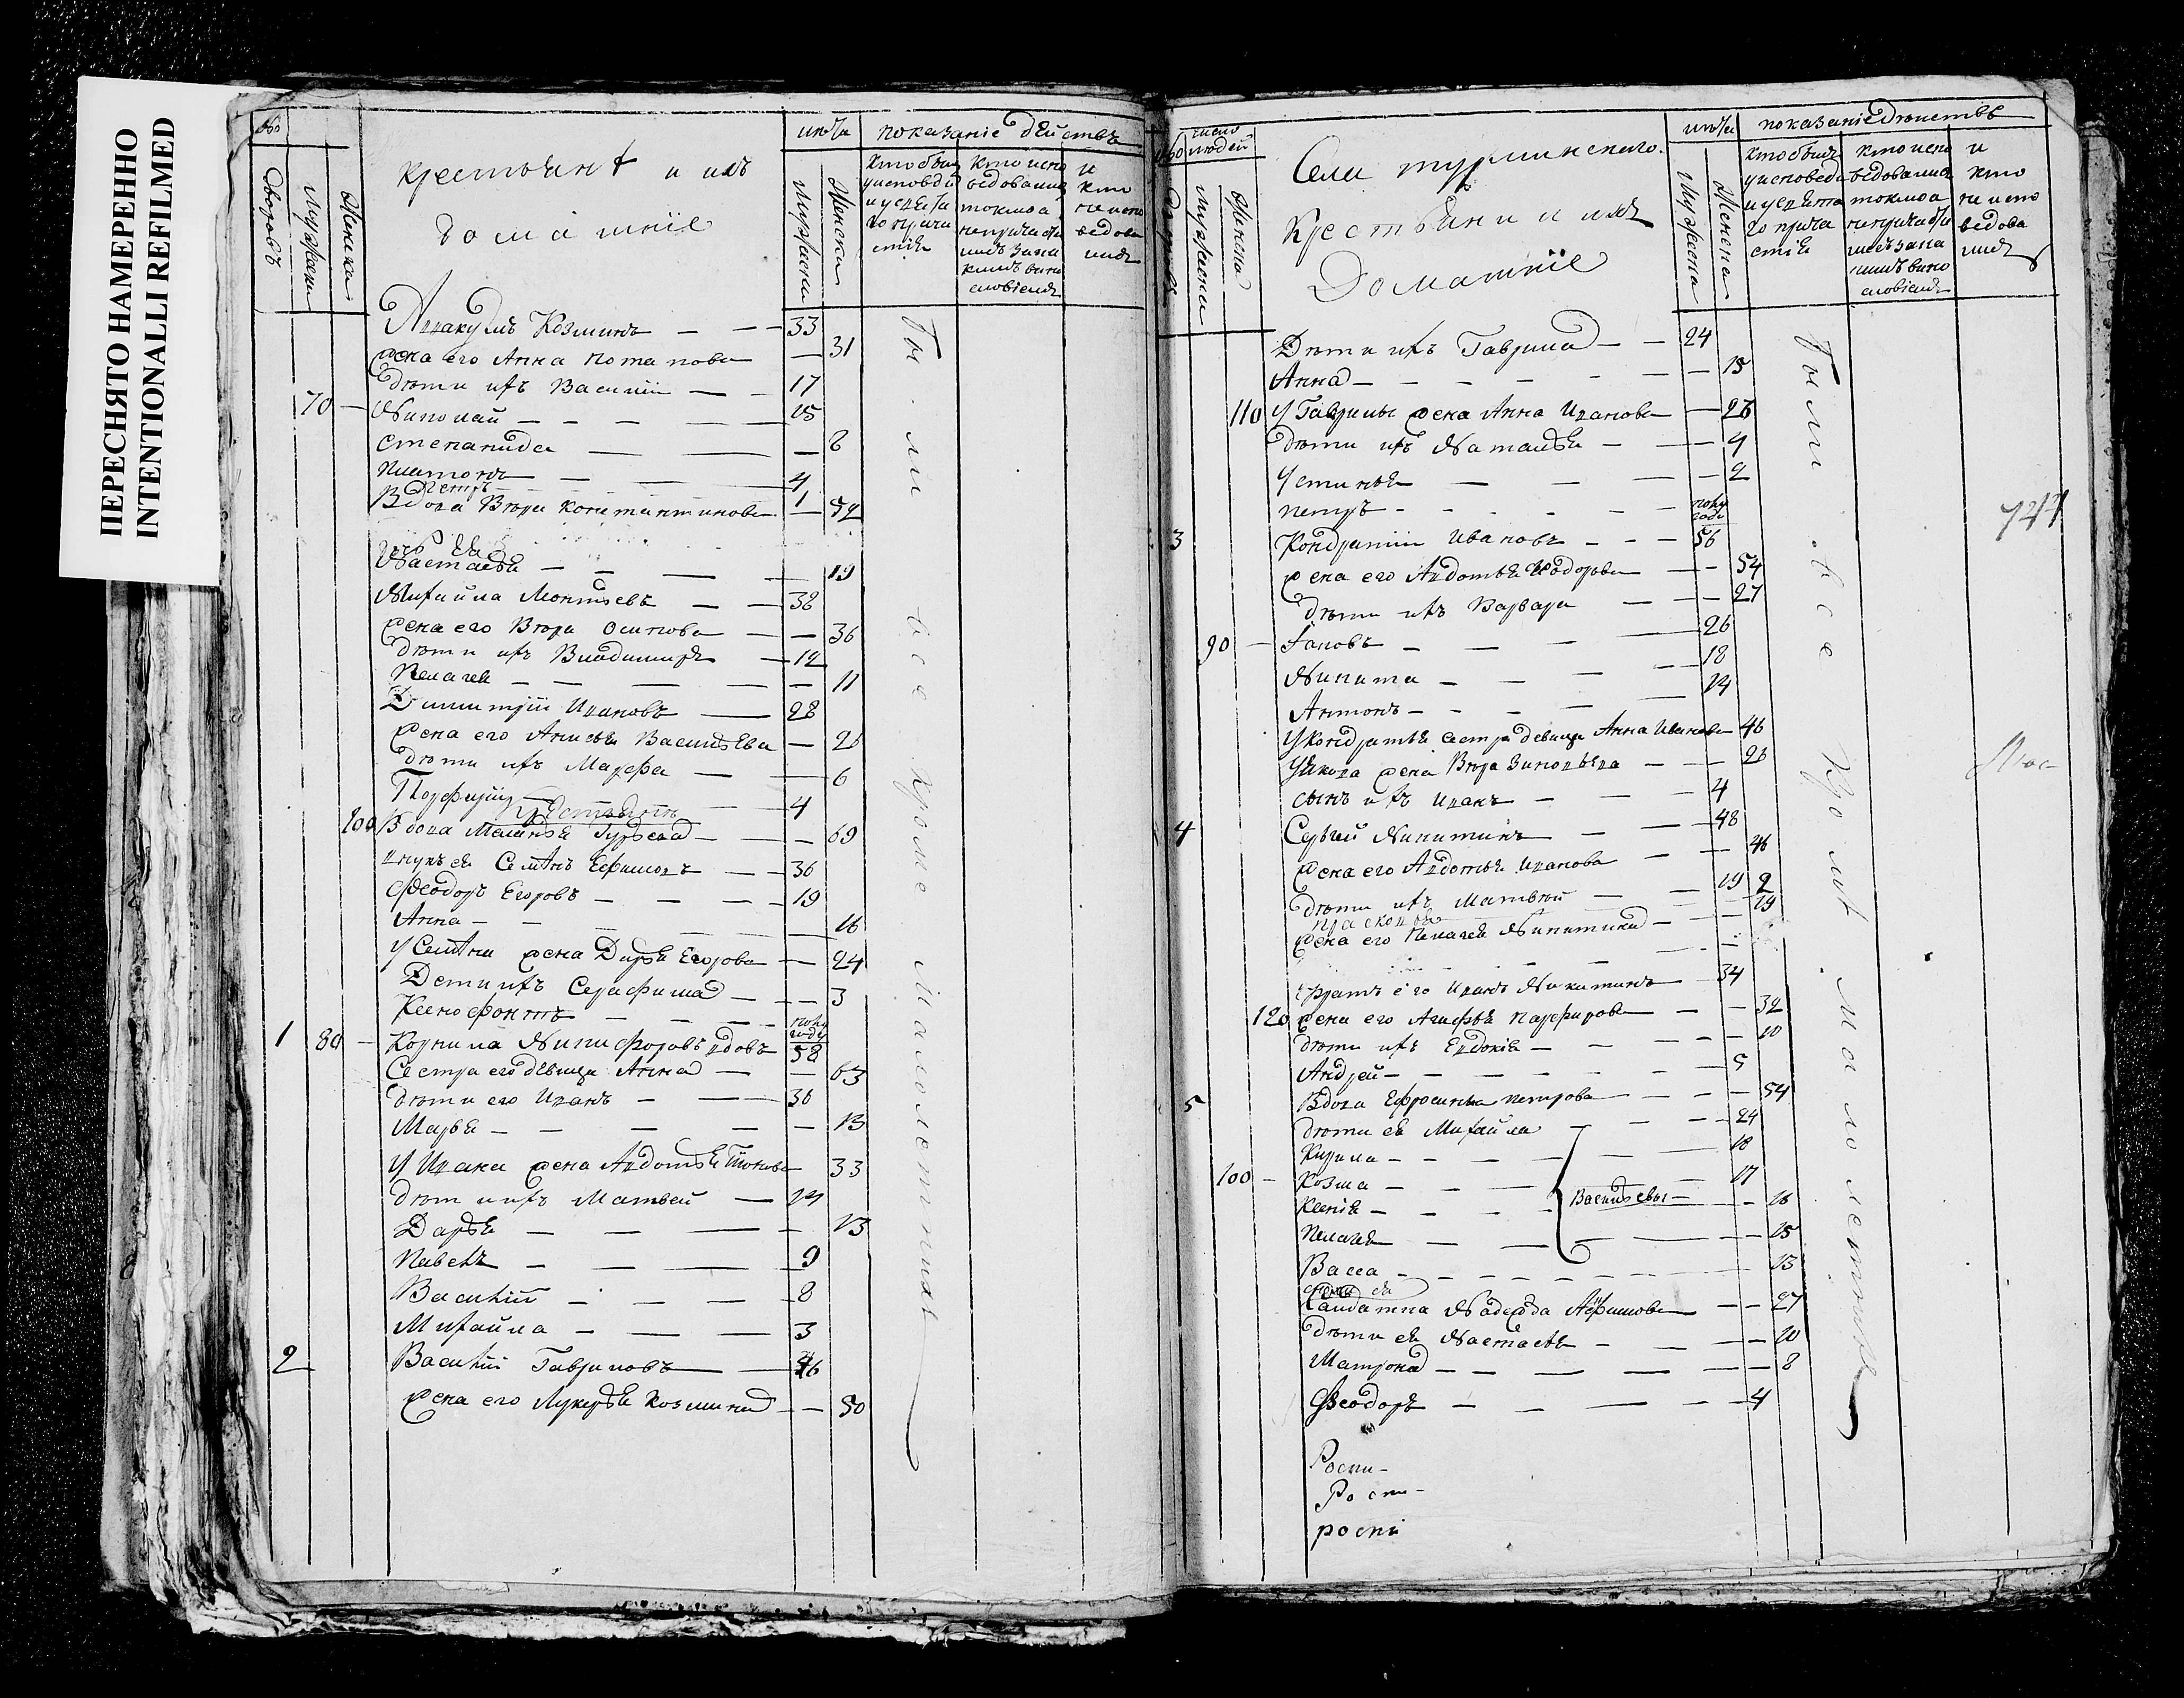 ПЕРЕСНЯТО НАМЕРЕННО
INTENTIONALLI REFILMED
дворовъ
мужеска
женска
крестьянѣ и ихъ
домашніе
мужеска
женска
показаніе действъ
кто былъ
у исповеди
и у святаго
причастія
кто испо
ведовался
токмо а
не причастился
и
кто
не испо
ведова
лся
Аввакумъ Козминъ — 33
жена его Анна Потапова — 31
дѣти ихъ Василій — 17
70 — Николай — 15
Степанида — 8
Платонъ — 4
Петръ — 1
Вдова Вѣра Константинова — 52
дочь ея
Настасья — 19
Михайла Монтѣевъ — 38
жена его Вѣра Осипова — 36
дѣти ихъ Владимиръ — 12
Пелагея — 11
Димитрій Ивановъ — 28
жена его Анисья Васильева — 26
дѣти ихъ Марфа — 6
Порфирій — 4
крестьянъ
100 Вдова Маланья Гурьева — 69
внукъ ея Семёнъ Ефимовъ — 36
Феодоръ Егоровъ — 19
Анна — 16
У Семёна жена Дарья Егорова — 24
Дети ихъ Серафима — 3
Ксенофонтъ — полу года
1 80 — Корнила Никифоровъ вдовъ 58
Сестра его девица Анна — 63
дѣти его Иванъ — 36
Марья — 13
У Ивана жена Авдотья Титова 33
дѣти ихъ Матвей — 14
Дарья — 13
Павелъ — 9
Василій — 8
Михайла — 3
2 Василій Гавриловъ — 46
жена его Лукерья Козмина — 50
были все кроме малолетныхъ
число
людей
мужеска
женска
Села
Крестьяни и ихъ
Домашніе
мужеска
женска
показаніе действъ
кто былъ
у исповеди
и у святаго
причастія
кто испо
ведовался
токмо а
не причастился
и
кто
не испо
ведова
лся
Дѣти ихъ Гаврила — 24
Анна — 15
110 У Гаврилы жена Анна Иванова — 26
дѣти ихъ Наталья — 4
Устинья — 2
Петръ — полу года
3 Кондратій Ивановъ — 56
жена его Авдотья Феодорова — 54
дѣти ихъ Варвара — 27
90 — Іаковъ — 26
Никита — 18
Антонъ — 14
У Кондратья сестра девица Анна Иванова 46
У Якова жена Вѣра Зиновьева — 26
сынъ ихъ Иванъ — 4
4 Сергей Никитинъ — 48
жена его Авдотья Иванова — 46
дѣти ихъ Матвей — 19
Прасковья 2
жена его Пелагея Никитина — 19
братъ его Иванъ Никитинъ — 34
120 жена его Агафья Парфирова — 32
дѣти ихъ Евдокія — 10
Андрей — 5
5 Вдова Ефросинья Петрова — 54
дѣти ея Михайла — 24
Кирила — 18
100 — Козма — 17
Васильевы
Ксенія — 16
Пелагея — 15
Васса — 13
Солдатка Надежда Афимова — 27
дѣти ея Настасья — 10
Матрона — 8
Феодоръ — 4
Роспи-
Роспи-
роспи
были все кромѣ малолетнихъ
744